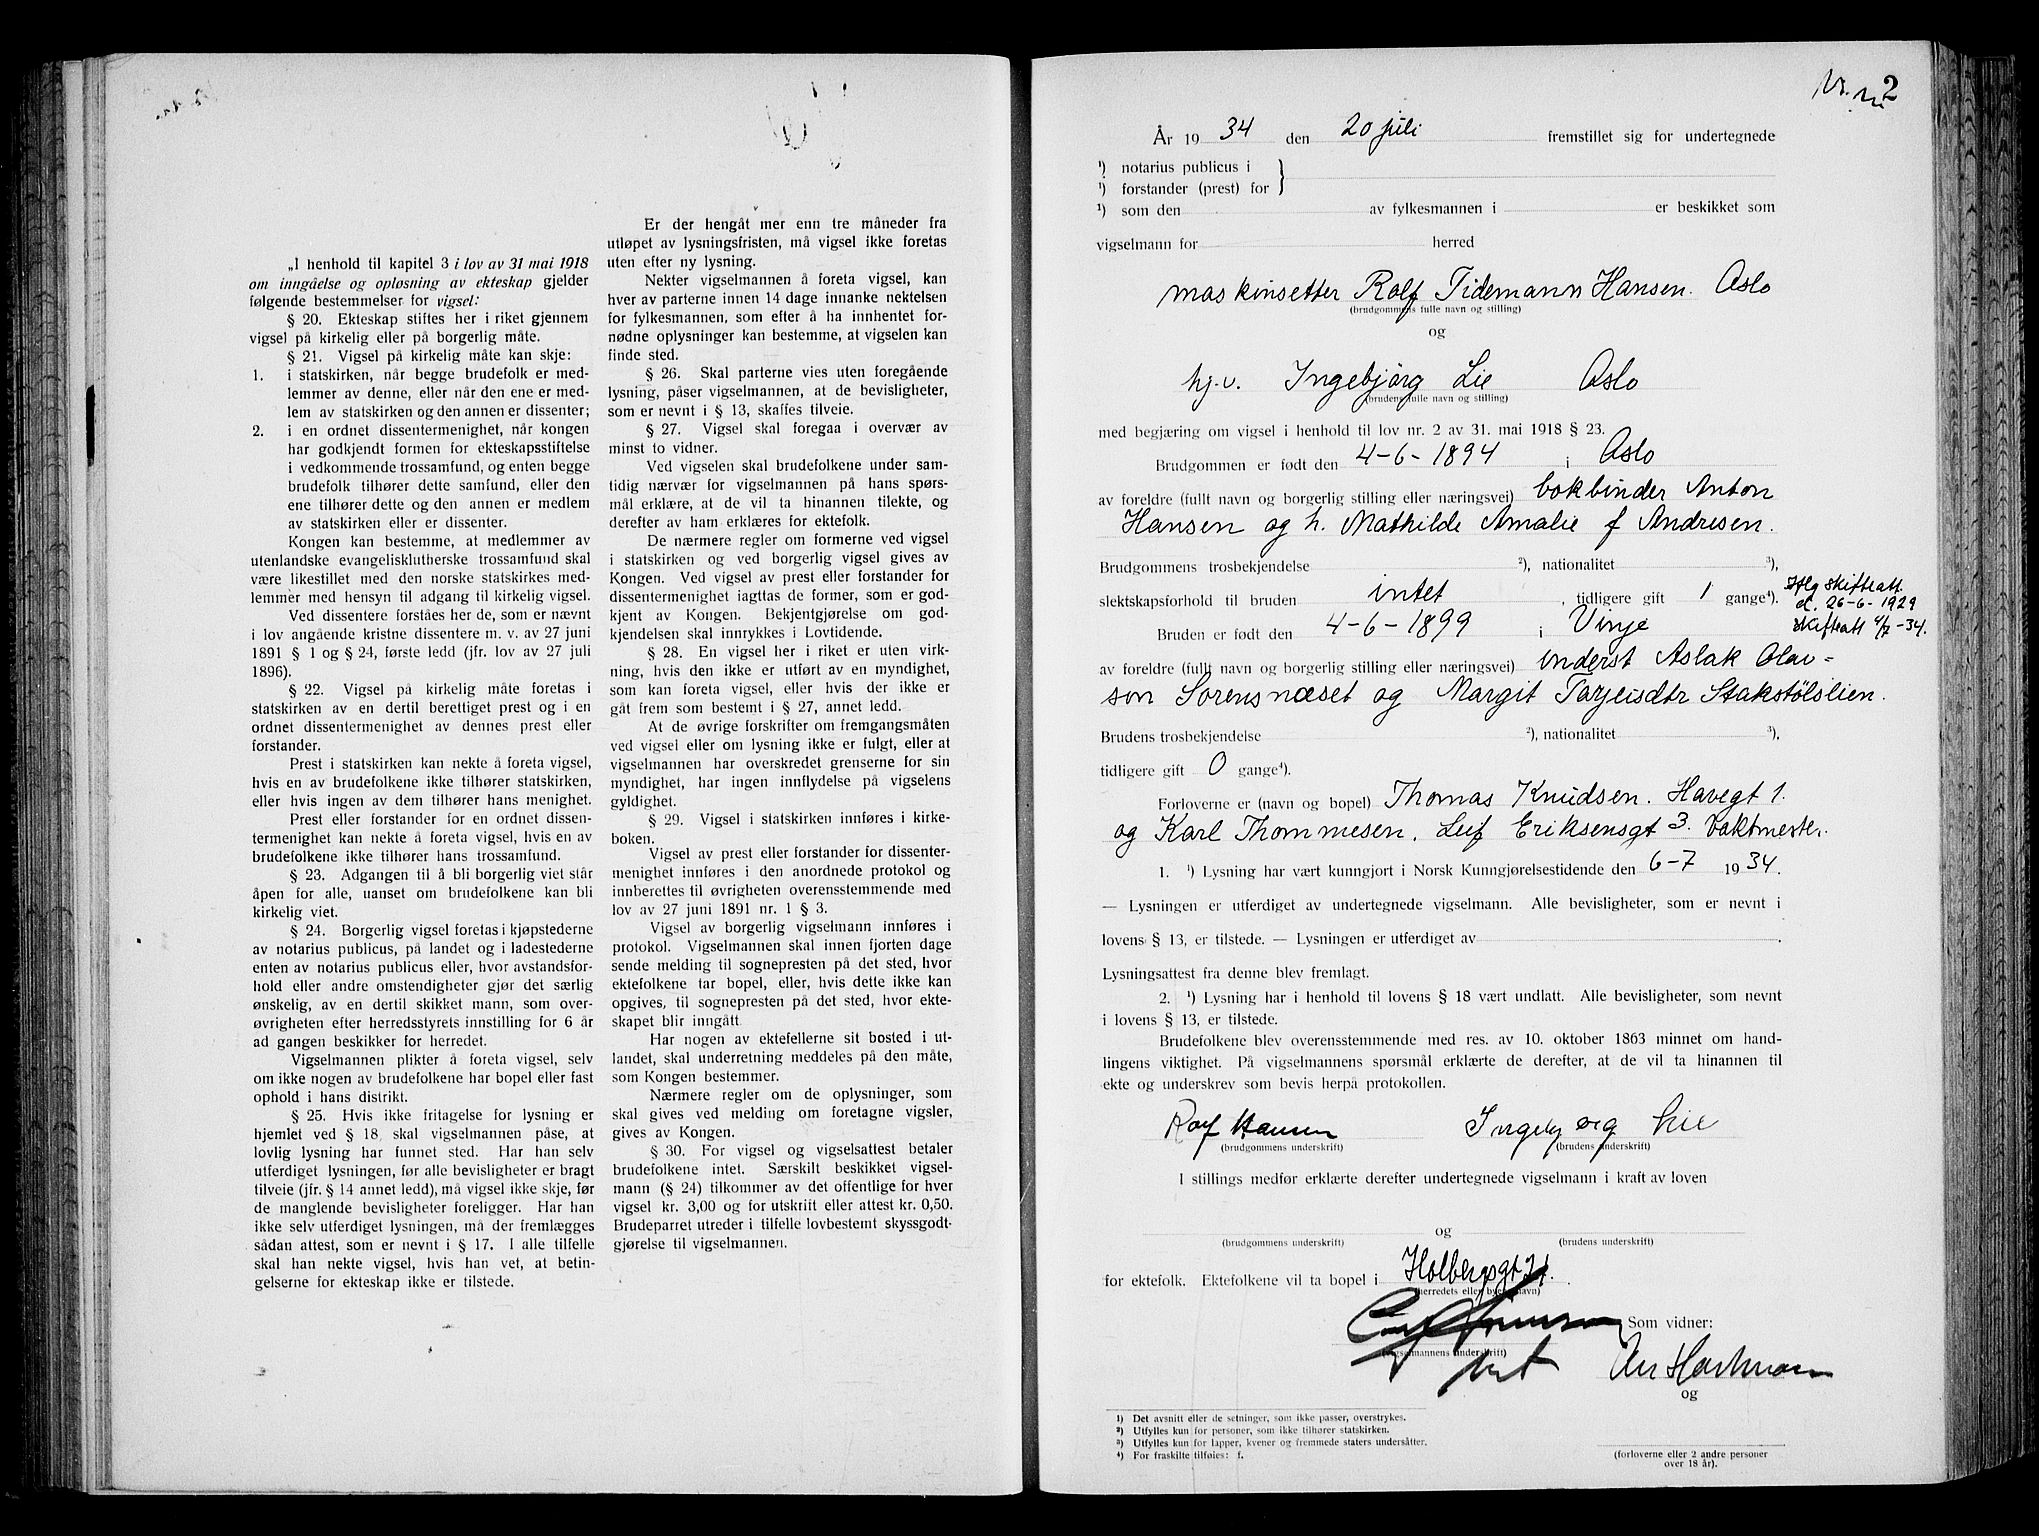 „I henhold til kapitel 3 i lov av 31 mai 1918
om inngåelse og opløsning av ekteskap gjelder
følgende bestemmelser for vigsel:
§ 20. Ekteskap stiftes her i riket gjennem
vigsel på kirkelig eller på borgerlig måte.
§ 21. Vigsel på kirkelig måte kan skje:
1. i statskirken, når begge brudefolk er med-
lemmer av denne, eller når den ene er med-
lem av statskirken og den annen er dissenter;
2. i en ordnet dissentermenighet, når kongen
har godkjendt formen for ekteskapsstiftelse
i vedkommende trossamfund, og enten begge
brudefolk tilhører dette samfund, eller den
ene tilhører dette og den annen er medlem
av statskirken eller er dissenter.
Kongen kan bestemme, at medlemmer av
utenlandske evangeliskluth­erske trossamfund skal
være likestillet med den norske statskirkes med-
lemmer med hensyn til adgang til kirkelig vigsel.
Ved dissentere forståes her de, som er nævnt
i lov angående kristne dissentere m. v. av 27 juni
1891 § 1 og § 24, første ledd (jfr. lov av 27 juli
1896).
§ 22. Vigsel på kirkelig måte foretas i
statskirken av en dertil berettiget prest og i en
ordnet dissentermenighet av dennes prest eller
forstander.
Prest i statskirken kan nekte å foreta vigsel,
hvis en av brudefolkene ikke tilhører statskirken,
eller hvis ingen av dem tilhører hans menighet.
Prest eller forstander for en ordnet dissen-
termenighet kan nekte å foreta vigsel, hvis en av
brudefolkene ikke tilhører hans trossamfund.
§ 23. Adgangen til å bli borgerlig viet står
åpen for alle, uanset om brudefolkene kan bli
kirkelig viet.
§ 24. Borgerlig vigsel foretas i kjøpstederne
av notarius publicus, på landet og i ladestederne
enten av notarius publicus eller, hvor avstandsfor-
hold eller andre omstendigheter gjør det særlig
ønskelig, av en dertil skikket mann, som over-
øvrigheten efter herredsstyrets innstilling for 6 år
ad gangen beskikker for herredet.
Vigselmannen plikter å foreta vigsel, selv
om ikke nogen av brudefolkene har bopel eller fast
ophold i hans distrikt.
§ 25. Hvis ikke fritagelse for lysning er
hjemlet ved § 18, skal vigselmannen påse, at
lovlig lysning har funnet sted. Har han selv
utferdiget lysningen, før alle bevisligheter er bragt
tilveie (jfr. § 14 annet ledd), må vigsel ikke skje, før
de manglende bevisligheter foreligger. Har han
ikke selv utferdiget lysningen, må der fremlægges
sådan attest, som er nevnt i § 17. I alle tilfelle
skal han nekte vigsel, hvis han vet, at betin-
gelserne for ekteskap ikke er tilstede.
Er der hengåt mer enn tre måneder fra
utløpet av lysningsfristen, må vigsel ikke foretas
uten efter ny lysning.
Nekter vigselmannen å foreta vigsel, kan
hver av parterne innen 14 dage innanke nektelsen
for fylkesmannen, som efter å ha innhentet for-
nødne oplysninger kan bestemme, at vigselen kan
finde sted.
§ 26. Skal parterne vies uten foregående
lysning, påser vigselmannen, at de bevisligheter,
som er nevnt i § 13, skaffes tilveie.
§ 27. Vigsel skal foregaa i overvær av
minst to vidner.
Ved vigselen skal brudefolkene under sam-
tidig nærvær for vigselmannen på hans spørs-
mål erklære, at de vil ta hinannen tilekte, og
derefter av ham erklæres for ektefolk.
De nærmere regler om formerne ved vigsel
i statskirken og ved borgerlig vigsel gives av
Kongen. Ved vigsel av prest eller forstander for
dissentermenighet iagttas de former, som er god-
kjent av Kongen. Bekjentgjørelse om god-
kjendelsen skal innrykkes i Lovtidende.
§ 28. En vigsel her i riket er uten virk-
ning, hvis den ikke er utført av en myndighet,
som kan foreta vigsel, eller hvis der ikke er
gåt frem som bestemt i § 27, annet ledd.
At de øvrige forskrifter om fremgangsmåten
ved vigsel eller om lysning ikke er fulgt, eller at
vigselmannen har overskredet grenserne for sin
myndighet, har ingen innflydelse på vigselens
gyldighet.
§ 29. Vigsel i statskirken innføres i kirke-
boken.
Vigsel av prest eller forstander for dissenter-
menighet innføres i den anordnede protokol og
innberettes til øvrigheten overensstemmende med
lov av 27 juni 1891 nr. 1 § 3.
Vigsel av borgerlig vigselmann innføres i
protokol. Vigselmannen skal innen fjorten dage
sende melding til sognepresten på det sted, hvor
ektefolkene tar bopel, eller, hvis dette ikke kan
opgives, til sognepresten på det sted, hvor ekte-
skapet blir inngått.
Har nogen av ektefellerne sit bosted i ut-
landet, skal underretning meddeles på den måte,
som Kongen bestemmer.
Nærmere regler om de oplysninger, som
skal gives ved melding om foretagne vigsler,
gives av Kongen.
§ 30. For vigsel og vigselsattest betaler
brudefolkene intet. Særskilt beskikket vigsel-
mann (§ 24) tilkommer av det offentlige for hver
vigsel kr. 3,00 og for utskriit eller attest kr. 0,50.
Brudeparret utreder i tilfelle lovbestemt skyssgodt-
gjørelse til vigselmannen.
2
År 1934 den 20 juli fremstillet sig for undertegnede
¹) notarius publicus i
¹) forstander (prest) for
¹) som den av fylkesmannen i er beskikket som
vigselmann for herred
maskinsetter Rolf Tidemann Hansen. Oslo
(brudgommens fulle navn og stilling)
og
hj.v. Ingebjörg Lie Oslo
(brudens fulle navn og stilling)
med begjæring om vigsel i henhold til lov nr. 2 av 31. mai 1918 § 23.
Brudgommen er født den 4-6-1894 i Oslo
av foreldre (fullt navn og borgerlig stilling eller næringsvei) bokbinder Anton
Hansen og h. Mathilde Amalie f Andresen.
Brudgommens trosbekjendelse ²), nationalitet ³),
slektskapsforhold til bruden intet, tidligere gift 1 gange⁴). Iflg skifteatt.
d. 26-6-1929
Bruden er født den 4-6-1899 i Vinje skifteatt 4/7-34.
av foreldre (fullt navn og borgerlig stilling eller næringsvei) inderst Aslak Olav=
son Sorensnæset og Margit Tarjeisdtr Stakstölslien.
Brudens trosbekjendelse ²), nationalitet ³),
tidligere gift 0 gange⁴).
Forloverne er (navn og bopel) Thomas Knudsen. Havegt 1.
og Karl Thommesen. Leif Eriksensgt 3. Vaktmester.
1. ¹) Lysning har vært kunngjort i Norsk Kunngjørelsestidende den 6-7 1934.
— Lysningen er utferdiget av undertegnede vigselmann. Alle bevisligheter, som er nevnt i
lovens § 13, er tilstede. — Lysningen er utferdiget av
Lysningsattest fra denne blev fremlagt.
2. ¹) Lysning har i henhold til lovens § 18 vært undlatt. Alle bevisligheter, som nevnt
i lovens § 13, er tilstede.
Brudefolkene blev overensstemmende med res. av 10. oktober 1863 minnet om hand-
lingens viktighet. På vigselmannens spørsmål erklærte de derefter, at de vil ta hinannen til
ekte og underskrev som bevis herpå protokollen.
Rolf Hansen Ingebjørg Lie
(brudgommens underskrift) (brudens underskrift)
I stillings medfør erklærte derefter undertegnede vigselmann i kraft av loven
og
(brudgommens underskrift) (brudens underskrift)
for ektefolk. Ektefolkene vil ta bopel i Holbergsgt 21.
(herredets eller byens navn)
Som vidner:
(vigselmannens underskrift)
og
¹) Det avsnitt eller de setninger, som ikke passer, overstrykes.
²) Utfylles kun for personer, som ikke tilhører statskirken.
³) Utfylles kun for lapper, kvener og fremmede staters undersåtter.
⁴) For fraskilte tilføies: f.
(forloverne eller 2 andre personer
over 18 år).